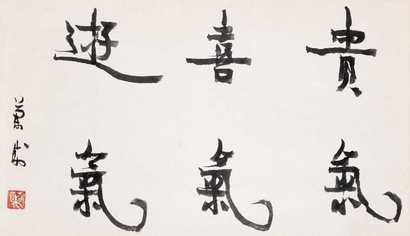 貴氣
喜氣
遊氣